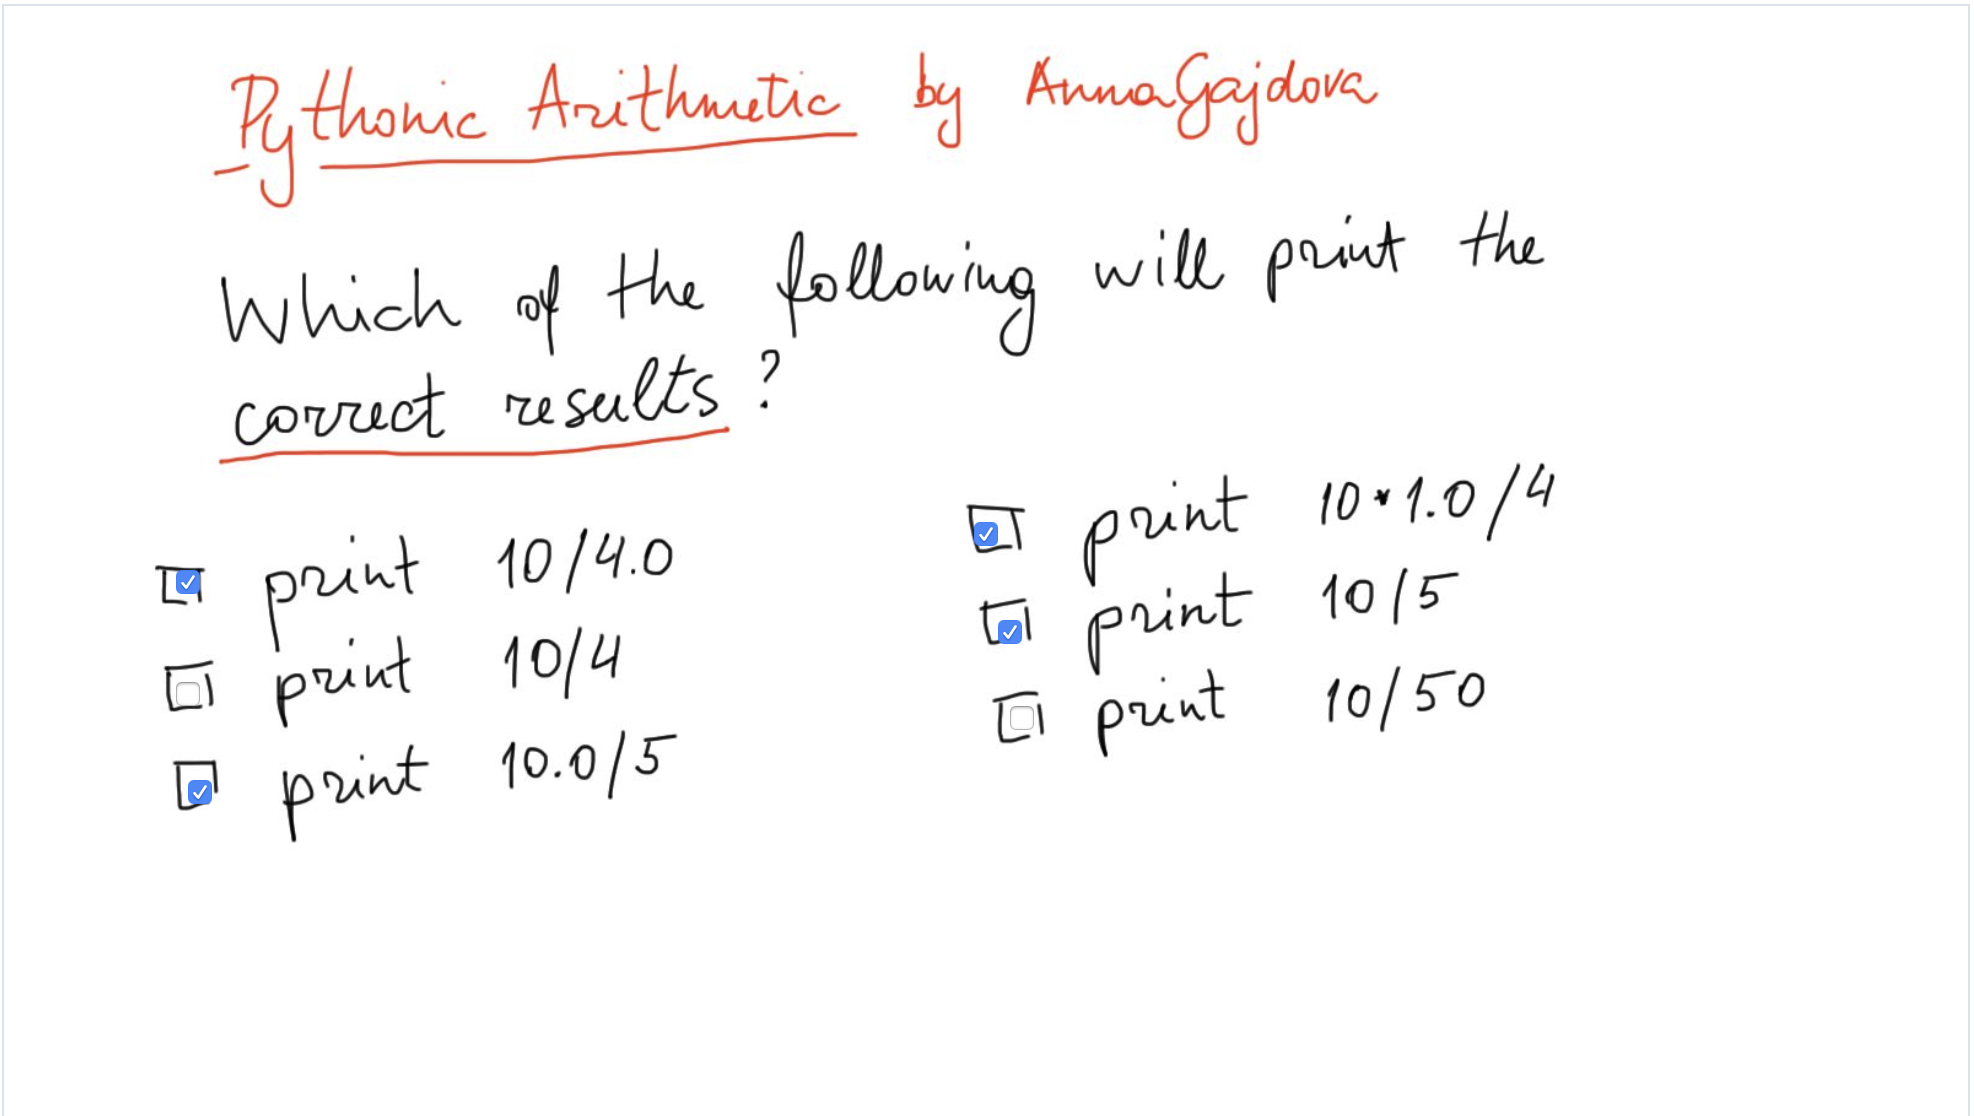 Pythonic Arithmetic by Anna Gajdova
Which of the following will print the
correct results?
print 10/4.0
print 10/4
print 10.0/5
print 10*1.0/4
print 10/5
print 10/50